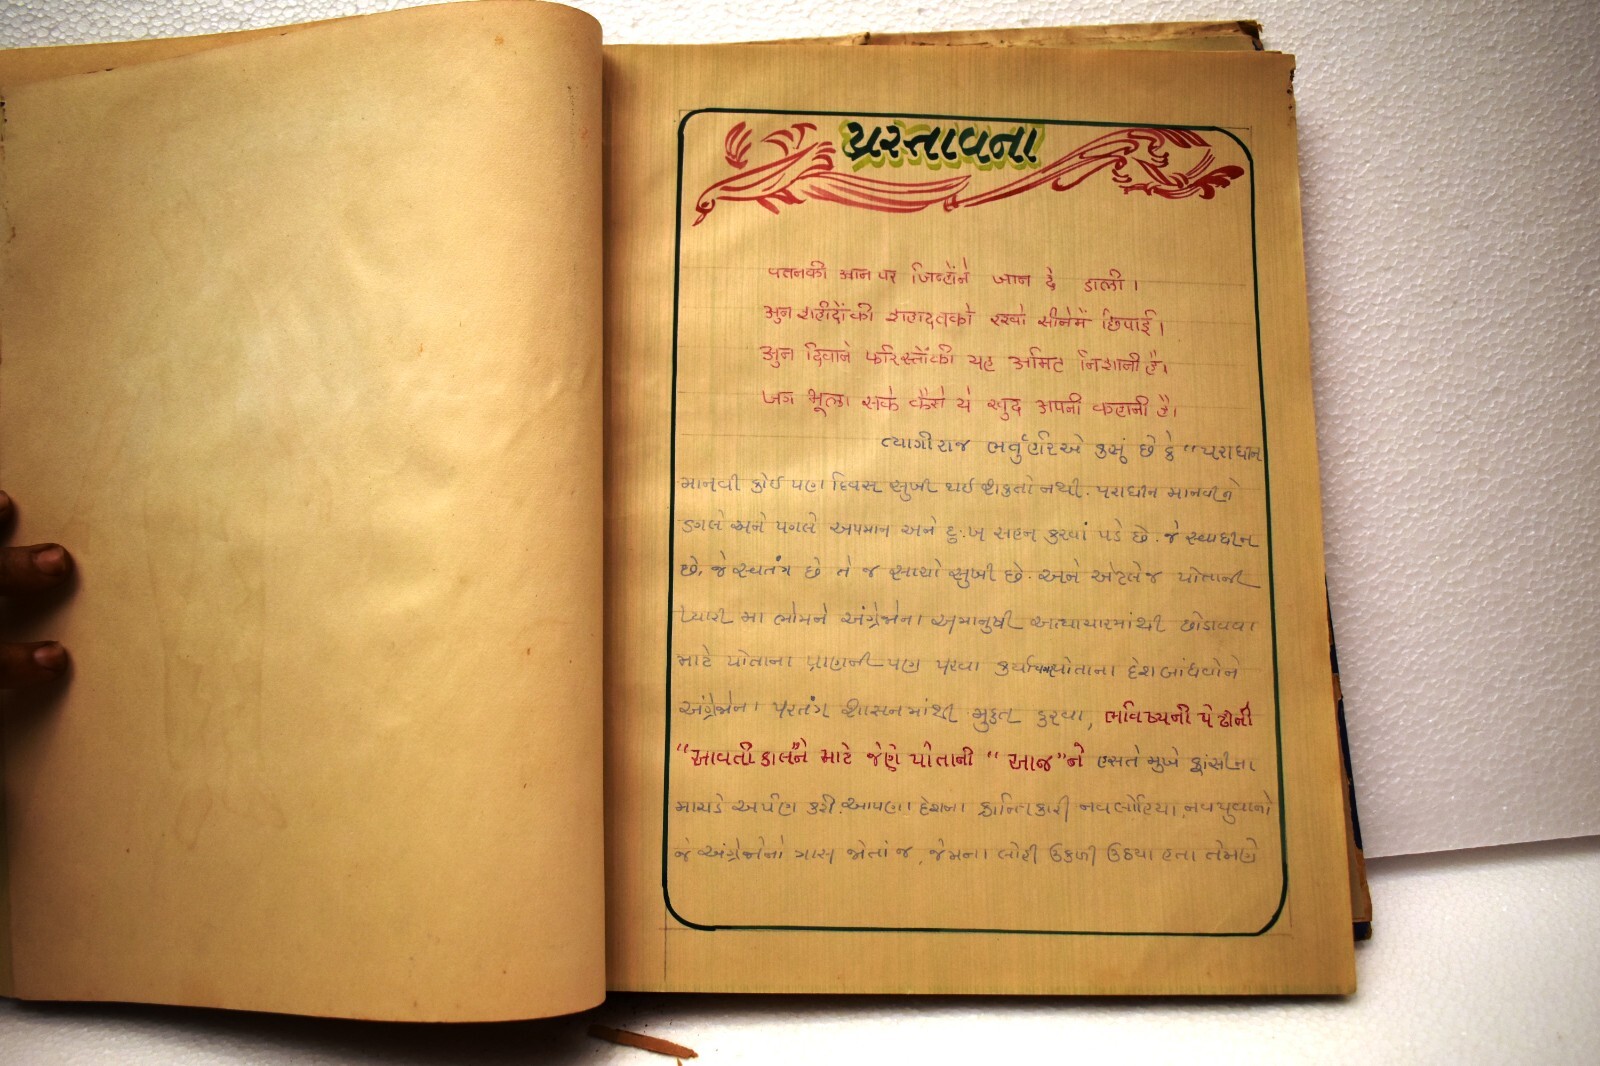 પ્રસ્તાવના
वतनकी आन पर जिन्होंने जान दे डाली।
अुन शहीदोंकी शहादतको रखो सीनेमें छिपाई।
अुन दिवाने फरिस्तोंकी यह अमिट निशानी है।
जग भूला सके कैसे ये खुद अपनी कहानी है।
ત્યાગીરાજ ભર્તુહરિએ કહ્યું છે કે "પરાધીન
માનવી કોઈ પણ દિવસ સુખી થઈ શકતો નથી. પરાધીન માનવીને
ડગલે અને પગલે અપમાન અને દુ:ખ સહન કરવાં પડે છે. જે સ્વાધીન
છે, જે સ્વતંત્ર છે તે જ સાચો સુખી છે. અને એટલે જ પોતાની
પ્યારી મા ભોમને અંગ્રેજોના અમાનુષી અત્યાચારમાંથી છોડાવવા
માટે પોતાના પ્રાણની પણ પરવા કર્યા વગર પોતાના દેશબાંધવોને
અંગ્રેજોના પરતંત્ર શાસનમાંથી મુક્ત કરવા, ભવિષ્યની પેઢીની
"આવતીકાલ"ને માટે જેણે પોતાની "આજ"ને હસતે મુખે ફાંસીના
માચડે અર્પણ કરી. આપણા દેશના ક્રાન્તિકારી નવલોહિયા, નવયુવાનો
જે અંગ્રેજોનો ત્રાસ જોતાં જ, જેમના લોહી ઉકળી ઉઠયા હતા તેમણે